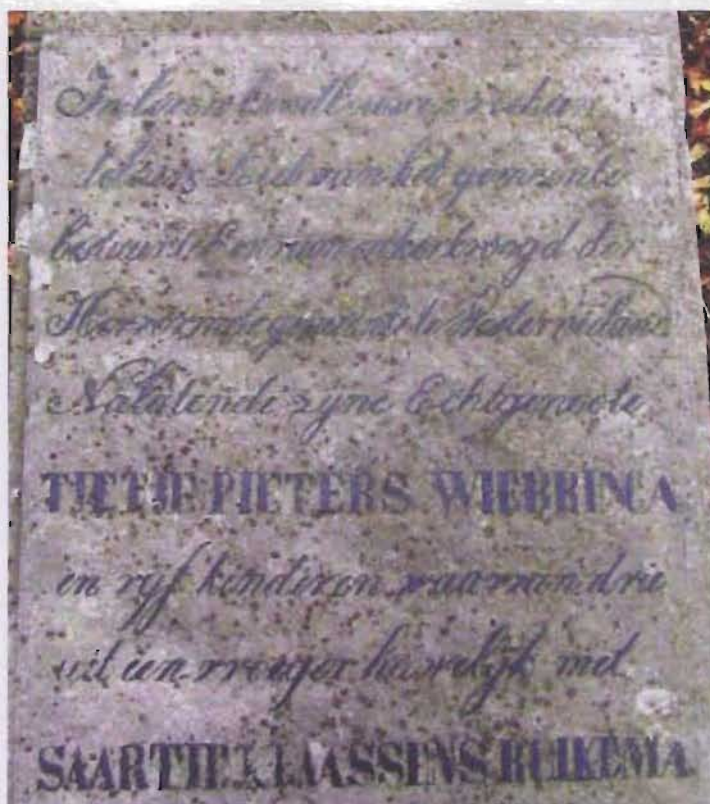 In leven
lid van het gemeente
bestuur en kerkvoogd der
Hervormde gemeente te
Nalatende zyne Echtgenoote
TIETJE PIETERS WIEBRINGA
en vyf kinderen waarvan drie
uit een vroeger huwelyk met
SAARTJE KLAASSENS BUIKEMA